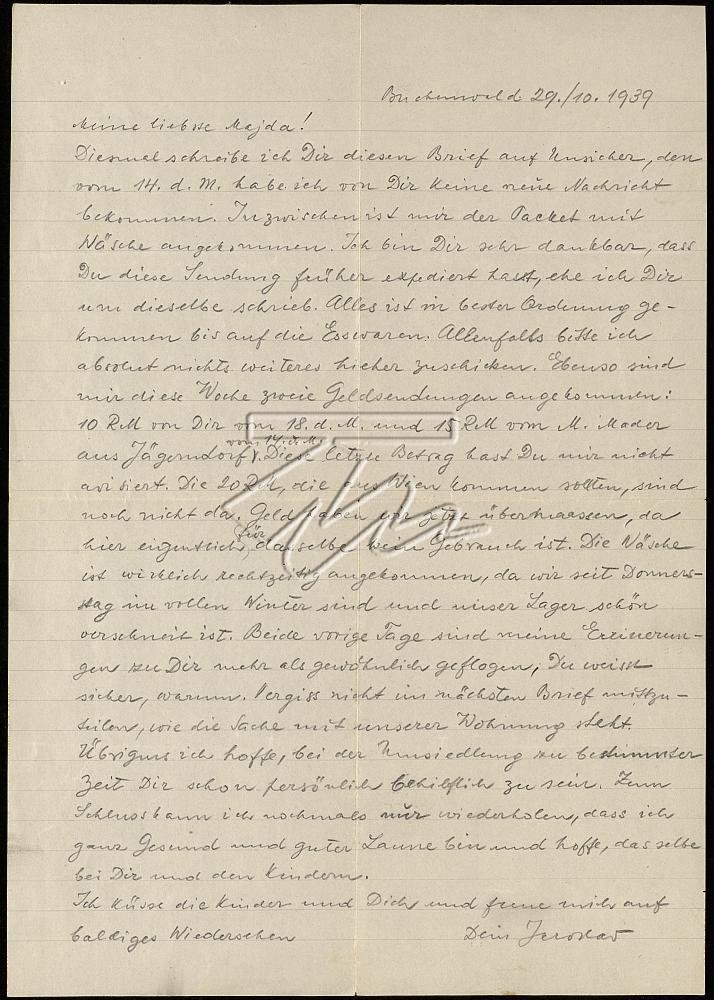 Buchenwald 29./10. 1939
Meine liebste Majda!
Diesmal schreibe ich Dir diesen Brief auf Unsicher, den
vom 14. d. M. habe ich von Dir keine neue Nachricht
bekommen. Inzwischen ist mir der Packet mit
Wäsche angekommen. Ich bin Dir sehr dankbar, dass
Du diese Sendung früher expediert hasst, ehe ich Dir
um dieselbe schrieb. Alles ist in bester Ordnung ge-
kommen bis auf die Esswaren. Allenfalls bitte ich
absolut nichts weiteres hieher zuschicken. Ebenso sind
mir diese Woche zweie Geldsendungen angekommen:
10 RM von Dir vom 18. d. M. und 15 RM vom M. Mader
vom 14. d. M.
aus Jägerndorf. Diese letzte Betrag hast Du mir nicht
avisiert. Die 20 RM, die aus Wien kommen sollten, sind
noch nicht da. Geld haben wir jetzt übermaassen, da
für
hier eigentlich dasselbe kein Gebrauch ist. Die Wäsche
ist wirklich rechtzeitig angekommen, da wir seit Donners-
stag im vollen Winter sind und unser Lager schön
verschneit ist. Beide vorige Tage sind meine Erinerun-
gen zu Dir mehr als gewöhnlich geflogen, Du weisst
sicher, warum. Vergiss nicht im nächsten Brief mitzu-
teilen, wie die Sache mit unserer Wohnung steht.
Übrigens ich hoffe, bei der Umsiedlung zu bestimmter
Zeit Dir schon persönlich behilflich zu sein. Zum
Schluss kann ich nochmals nur wiederholen, dass ich
ganz Gesund und guter Laune bin und hoffe, das selbe
bei Dir und den Kindern.
Ich küsse die Kinder und Dich und freue mich auf
baldiges Wiedersehen Dein Jaroslav